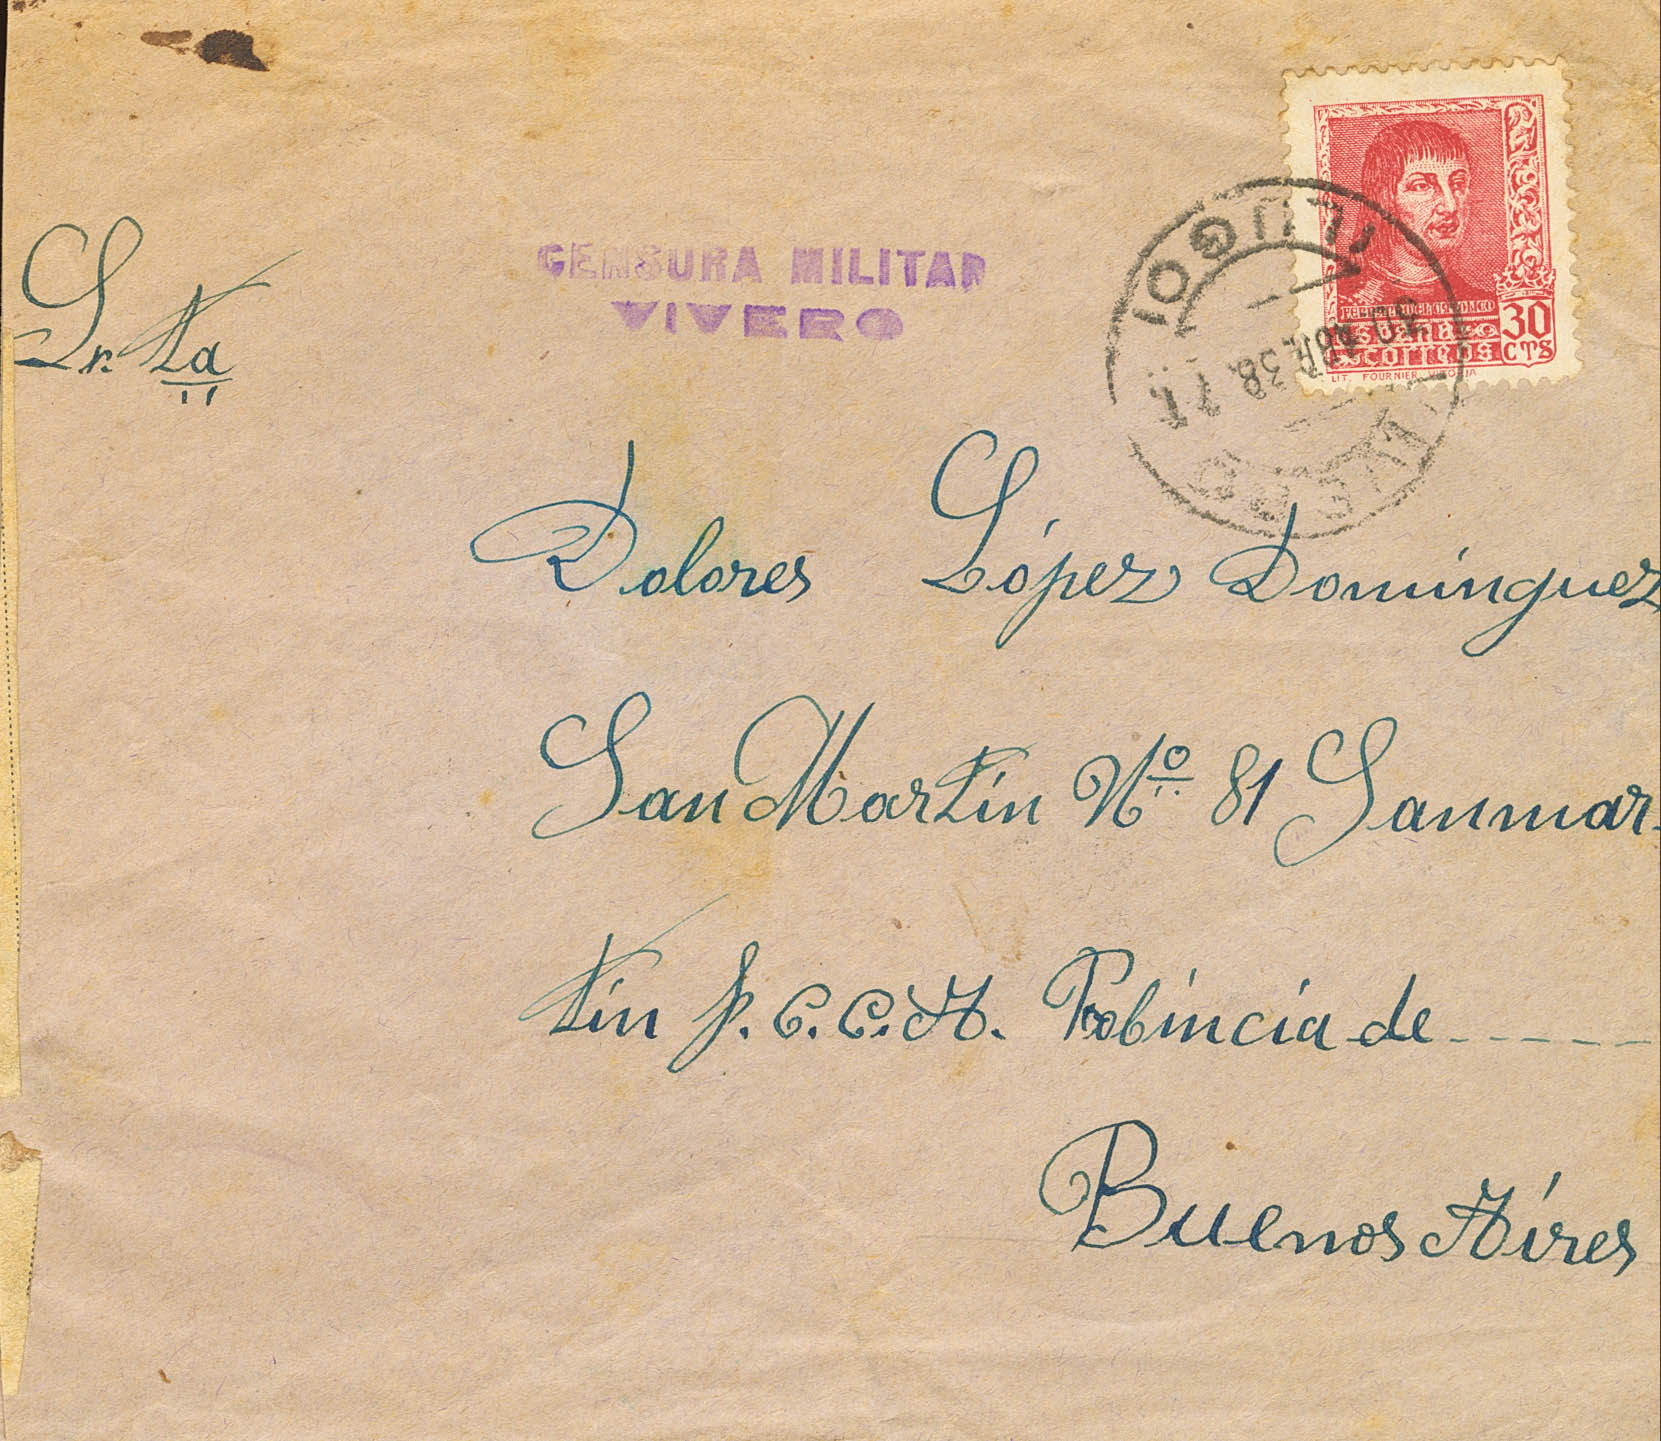 Sr.ta
CENSURA MILITAR
VIVERO
FERNANDO EL CATOLICO
ESPAÑA
CORREOS
30
CTS
LIT. FOURNIER VITORIA
LUGO
30 ABR. 38. 7T
Dolores López Domínguez
San Martín Nº 81 Sanmar-
tín F.C.C.A. Probincia de -----
Buenos Aíres